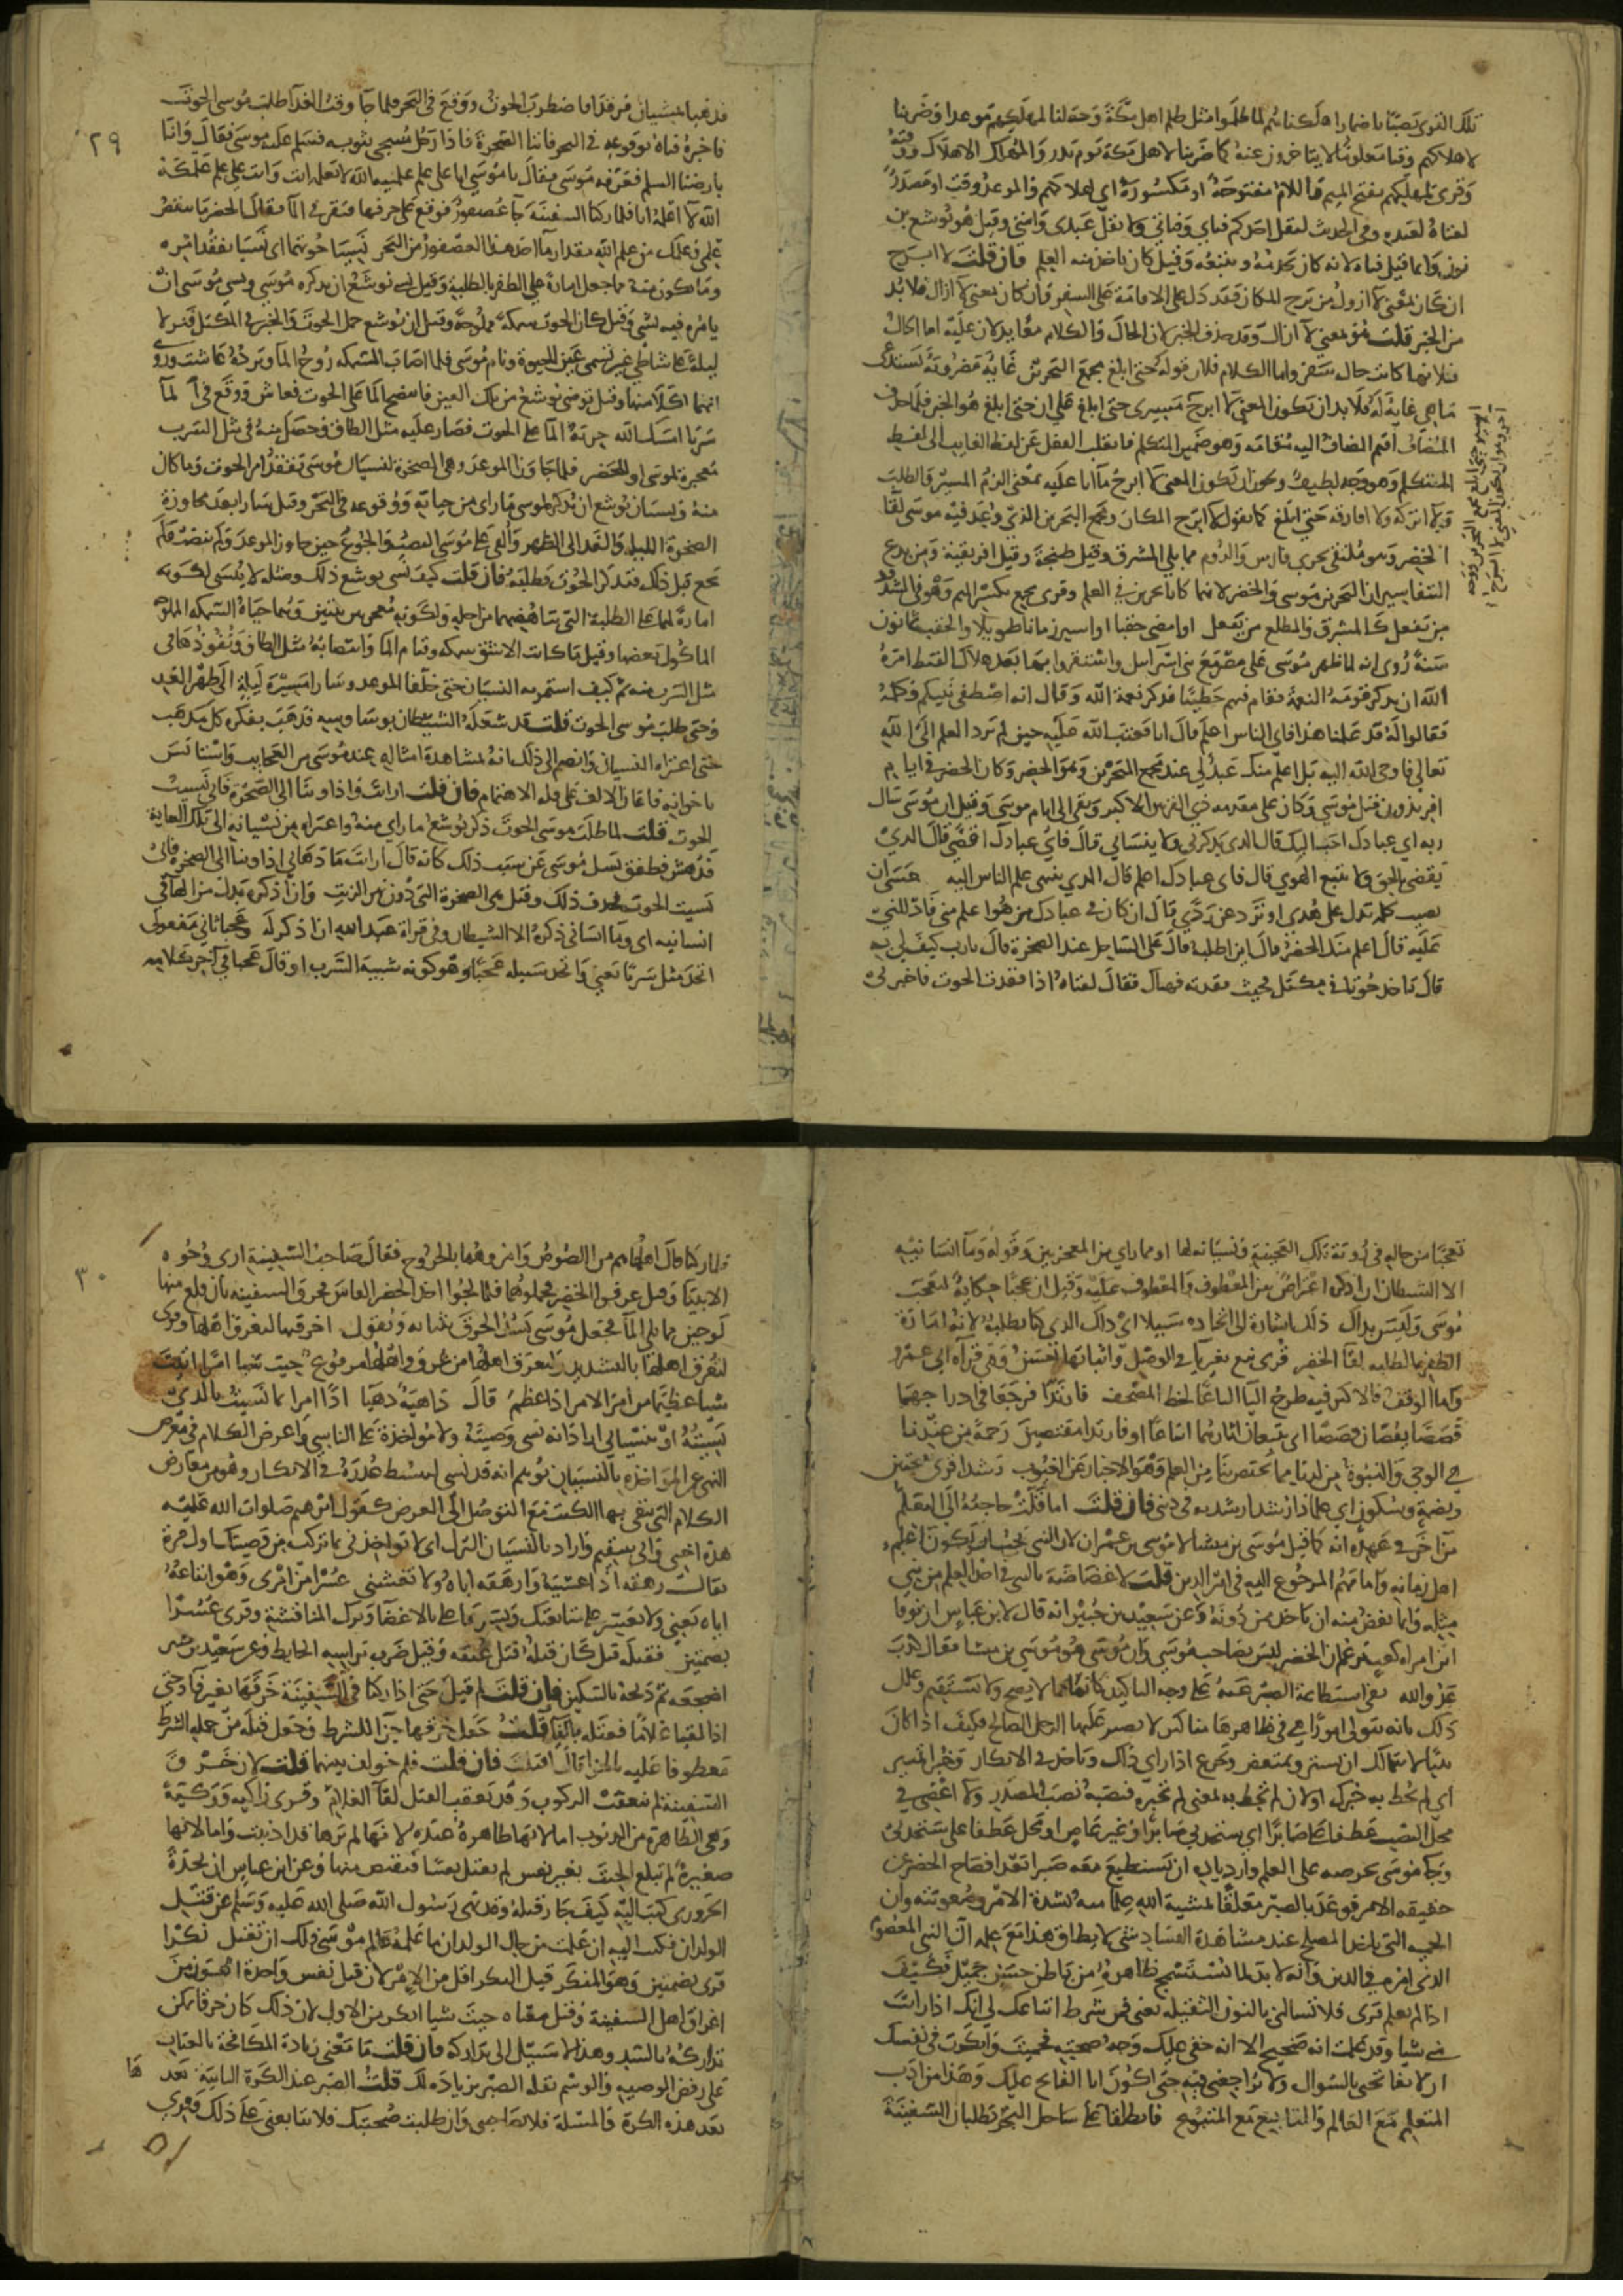 تلك القرى نصبا باضمار اهلكنا ثم لما ظلموا مثل ظلم اهل مكة وجعلنا لمهلكهم موعدا وضربنا
لاهلاكهم وقتا معلوما لا يتاخرون عنه كما ضربنا لاهل مكة يوم بدر والمهلك الاهلاك ووقته
وقرى لمهلكهم بفتح الميم واللام مفتوحة او مكسورة اي لهلاكهم والموعد وقت او مصدر
لفتاه لعبده وفي الحديث ليقل احدكم فتاي وفتاتي ولا يقل عبدي وامتي وقيل هو يوشع بن
نون وانما قيل فتاه لانه كان يخدمه ويتبعه وقيل كان ياخذ منه العلم فان قلت لا ابرح
ان كان بمعنى لا ازول من برح المكان فقد دل على الاقامة على السفر وان كان بمعنى لا ازال فلا بد
من الخبر قلت هو بمعنى لا ازال وقد حذف الخبر لان الحال والكلام معا يدلان عليه اما الحال
فلانها كانت حال سفر واما الكلام فلان قوله حتى ابلغ مجمع البحرين غاية مضروبة تستدعي
ما هي غاية له فلا بد ان يكون المعنى لا ابرح مسيري حتى ابلغ على ان حتى ابلغ هو الخبر فلما حذف
المضاف اقيم المضاف اليه مقامه وهو ضمير المتكلم فانقلب الفعل عن لفظ الغايب الى لفظ
المتكلم وهو وجه لطيف ويجوز ان يكون المعنى لا ابرح ما انا عليه بمعنى الزم المسير والطلب
ولا اتركه ولا افارقه حتى ابلغ كما تقول لا ابرح المكان ومجمع البحرين الذي وعد فيه موسى لقا
الخضر وهو ملتقى بحري فارس والروم مما يلي المشرق وقيل طنجة وقيل افريقية ومن بدع
التفاسير ان البحرين موسى والخضر لانهما كانا بحرين في العلم وقرى مجمع بكسر الميم وهو في الشذوذ
من يفعل كالمشرق والمطلع من يفعل او امضي حقبا او اسير زمانا طويلا والحقب ثمانون
سنة روى انه لما ظهر موسى على مصر مع بني اسرايل واستقروا بها بعد هلاك القبط امره
الله ان يذكر قومه النعمة فقام فيهم خطيبا فذكر نعمة الله وقال انه اصطفى نبيكم وكلمه
فقالوا له قد علمنا هذا فاي الناس اعلم قال انا فعتب الله عليه حين لم يرد العلم الى الله
تعالى فاوحى الله اليه بل اعلم منك عبد لي عند مجمع البحرين وهو الخضر وكان الخضر في ايام
افريذون قبل موسى وكان على مقدمة ذي القرنين الاكبر وبقي الى ايام موسى وقيل ان موسى سال
ربه اي عبادك احب اليك قال الذي يذكرني ولا ينساني قال فاي عبادك اقضى قال الذي
يقضي بالحق ولا يتبع الهوى قال فاي عبادك اعلم قال الذي يبتغي علم الناس اليه عسى ان
يصيب كلمة تدل على هدى او ترد عن ردى قال ان كان في عبادك من هو اعلم مني فادللني
عليه قال اعلم منك الخضر قال اين اطلبه قال على الساحل عند الصخرة قال يارب كيف لي به
قال تاخذ حوتا في مكتل فحيث فقدته فهناك فقال لفتاه اذا فقدت الحوت فاخبرني
فذهبا يمشيان فرقد فاضطرب الحوت ووقع في البحر فلما جا وقت الغدا طلب موسى الحوت
فاخبره فتاه بوقوعه في البحر فاتيا الصخرة فاذا رجل مسجى بثوبه فسلم عليه موسى فقال وانا
بارضنا السلم فعرفه موسى فقال يا موسى انا على علم علمنيه الله لا تعلمه انت وانت على علم علمكه
الله لا اعلمه انا فلما ركبا السفينة جا عصفور فوقع على حرفها فنقر في الما فقال الخضر ما ينقص
علمي وعلمك من علم الله مقدار ما اخذ هذا العصفور من البحر نسيا حوتهما اي نسيا تفقد امره
وما يكون منه مما جعل امارة على الظفر بالطلبة وقيل نسي يوشع ان يذكره موسى ونسي موسى ان
يامره فيه بشي وقيل كان الحوت سمكة مملوحة وقيل ان يوشع حمل الحوت والخبز في المكتل فنزلا
ليلة على شاطي عين تسمى عين الحيوة ونام موسى فلما اصاب السمكة روح الما وبرده عاشت وروى
انهما اكلا منها وقيل توضى يوشع من تلك العين فانتضح الما على الحوت فعاش ووقع في الما
سربا امسك الله جرية الما على الحوت فصار عليه مثل الطاق وحصل منه في مثل السرب
معجزة لموسى او للخضر فلما جاوزا الموعد وهي الصخرة لنسيان موسى تفقد امر الحوت وما كان
منه ونسيان يوشع ان يذكر لموسى ما راى من حياته ووقوعه في البحر وقيل سارا بعد مجاوزة
الصخرة الليلة والغد الى الظهر والقى على موسى النصب والجوع حين جاوز الموعد ولم ينصب ولم
يجع قبل ذلك فتذكر الحوت وطلبه فان قلت كيف نسى يوشع ذلك ومثله لا ينسى لكونه
امارة لهما على الطلبة التي تناهضا من اجلها ولكونه معجزتين ثنتين وهما حياة السمكة المملوحة
الماكول بعضها وقيل ما كانت الا شق سمكة وقيام الما وانتصابه مثل الطاق ونفوذها في
مثل السرب منه ثم كيف استمر به النسيان حتى خلفا الموعد وسارا مسيرة ليلة الى ظهر الغد
وحتى طلب موسى الحوت قلت قد شغله الشيطان بوساوسه فذهب بفكره كل مذهب
حتى اعتراه النسيان وانضم الى ذلك انه لمشاهدة امثاله عند موسى من العجايب واستانس
باخوانه فاعان الالف على قلة الاهتمام فان قلت ارايت واذ اوينا الى الصخرة فاني نسيت
الحوت قلت لما طلب موسى الحوت ذكر يوشع ما راى منه وما اعتراه من نسيانه الى تلك الغاية
فدهش فطفق يسل موسى عن سبب ذلك كانه قال ارايت ما دهاني اذ اوينا الى الصخرة فاني
نسيت الحوت فحذف ذلك وقيل هي الصخرة التي دون نهر الزيت وان اذكره بدل من الها في
انسانيه اي وما انساني ذكره الا الشيطان وفي قراة عبد الله ان اذكر له وعجبا ثاني مفعولي
اتخذ مثل سربا يعني واتخذ سبيله عجبا وهو كونه شبيه السرب او قال عجبا في اخر كلامه
تعجبا من حاله في رؤية تلك العجيبة ونسيانه لها او مما راى من المعجزتين وقوله وما انسانيه
الا الشيطان ان اذكره اعتراض بين المعطوف والمعطوف عليه وقيل ان عجبا حكاية لتعجب
موسى وليس بذاك ذلك اشارة الى اتخاذه سبيلا اي ذلك الذي كنا نطلبه لانه امارة
الظفر بالطلبة لقا الخضر قرى نبغ بغير يا في الوصل واثباتها احسن وهي قراة ابي عمرو
واما الوقف فالاكثر فيه طرح اليا اتباعا لخط المصحف فارتدا فرجعا في ادراجهما
قصصا يقصان قصصا اي يتبعان اثارهما اتباعا او فارتدا مقتصين رحمة من عندنا
هي الوحي والنبوة من لدنا مما يختص بنا من العلم وهو الاخبار عن الغيوب رشدا قرى بفتحتين
وبضمة وسكون اي علما ذا رشد ارشد به في ديني فان قلت اما دلت حاجته الى التعلم
من اخر في عهده انه كما قيل موسى بن ميشا لا موسى بن عمران لان النبي يجب ان يكون اعلم
اهل زمانه وامامهم المرجوع اليه في امر الدين قلت لا غضاضة بالنبي في اخذ العلم من نبي
مثله وانما يغض منه ان ياخذ ممن دونه وعن سعيد بن جبير انه قال لابن عباس ان نوفا
ابن امراة كعب يزعم ان الخضر ليس بصاحب موسى وان موسى هو موسى بن ميشا فقال كذب
عدو الله نفى استطاعة الصبر معه على وجه التاكيد كانها مما لا يصح ولا يستقيم وعلل
ذلك بانه يتولى امورا هي في ظاهرها مناكير لا يصبر عليها الرجل الصالح فكيف اذا كان
نبيا لا يتمالك ان يشمئز ويمتعض ويجزع اذا راى ذلك وياخذ في الانكار وخبرا تمييز
اي لم يحط به خبرك او لان لم تحط به بمعنى لم تخبره فنصبه نصب المصدر ولا اعصي في
محل النصب عطفا على صابرا اي ستجدني صابرا وغير عاص او لا محل عطفا على ستجدني
رجا موسى لحرصه على العلم وازدياده ان يستطيع معه صبرا بعد افصاح الخضر عن
حقيقة الامر فوعد بالصبر معلقا لمشية الله علما منه بشدة الامر وصعوبته وان
الحمية التي تاخذ المصلح عند مشاهدة الفساد شي لا يطاق هذا مع علمه ان النبي المعصوم
الذي امره في الدين وانه لا بد لما يستسمج ظاهره من باطن حسن جميل فكيف
اذا لم يعلم قرى فلا تسالني بالنون الثقيلة يعني فمن شرط اتباعك لي انك اذا رايت
مني شيا وقد علمت انه صحيح الا انه خفي عليك وجه صحته فحميت وانكرت في نفسك
ان لا تفاتحني بالسوال ولا تراجعني فيه حتى اكون انا الفاتح عليك وهذا من ادب
المتعلم مع العالم والتابع مع المتبوع فانطلقا على ساحل البحر يطلبان السفينة
فلما ركبا قال اهلهما هم من اللصوص وامروهما بالخروج فقال صاحب السفينة ارى وجوه
الانبيا وقيل عرفوا الخضر فحملوهما فلما لججوا اخذ الخضر الفاس فخرق السفينة بان قلع منها
لوحين مما يلي الما فجعل موسى يسد الخرق بثيابه ويقول اخرقتها لتغرق اهلها وقرى
لتغرق اهلها بالتشديد وليغرق اهلها من غرق واهلها مرفوع جيت شيا امرا اتيت
شيا عظيما من امر الامر اذا عظم قال داهية دهيا ادا امرا بما نسيت بالذي
نسيته او بنسياني اراد انه نسى وصيته ولا مواخذة على الناسي واخرج الكلام في معرض
النهي عن المواخذة بالنسيان يوهم انه قد نسي ليبسط عذره في الانكار وهو من معاريض
الكلام التي يتقى بها الكذب مع التوصل الى الغرض كقول ابرهيم صلوات الله عليه
هذه اختي واني سقيم واراد بالنسيان الترك اي لا تواخذني بما تركت من وصيتك اول مرة
يقال رهقه اذا غشيه وارهقه اياه ولا تغشني عسرا من امري وهو اتباعه
اياه يعني ولا تعسر على متابعتك ويسرها على بالاغضا وترك المناقشة وقرى عسرا
بضمتين فقتله قيل كان قتله فتل عنقه وقيل ضرب براسه الحايط وعن سعيد بن جبير
اضجعه ثم ذبحه بالسكين فان قلت لم قيل حتى اذا ركبا في السفينة خرقها بغير فا وحتى
اذا لقيا غلاما فقتله بالفا قلت جعل خرقها جزا للشرط وجعل قتله من جملة الشرط
معطوفا عليه والجزا قال اقتلت فان قلت فلم خولف بينهما قلت لان خرق
السفينة لم يتعقب الركوب وقد تعقب القتل لقا الغلام وقرى زاكية وزكية
وهي الطاهرة من الذنوب اما لانها طاهرة عنده لانه لم يرها قد اذنبت واما لانها
صغيرة لم تبلغ الحنث بغير نفس لم تقتل نفسا فتقتص منها وعن ابن عباس ان نجدة
الحروري كتب اليه كيف جاز قتله وقد نهى رسول الله صلى الله عليه وسلم عن قتل
الولدان فكتب اليه ان علمت من حال الولدان ما علمه عالم موسى فلك ان تقتل نكرا
قرى بضمتين وهو المنكر قيل النكر اقل من الامر لان قتل نفس واحدة اهون من
اغراق اهل السفينة وقيل معناه جيت شيا انكر من الاول لان ذلك كان خرقا يمكن
تداركه بالسد وهذا لا سبيل الى تداركه فان قلت ما معنى زيادة المكافحة بالعتاب
على رفض الوصية والوسم بقلة الصبر بزيادة لك قلت الصبر عند الكرة الثانية بعد ها
بعد هذه الكرة والمسلة فلا تصاحبني وان طلبت صحبتك فلا تتابعني على ذلك وقرى
٢٩
٣٠